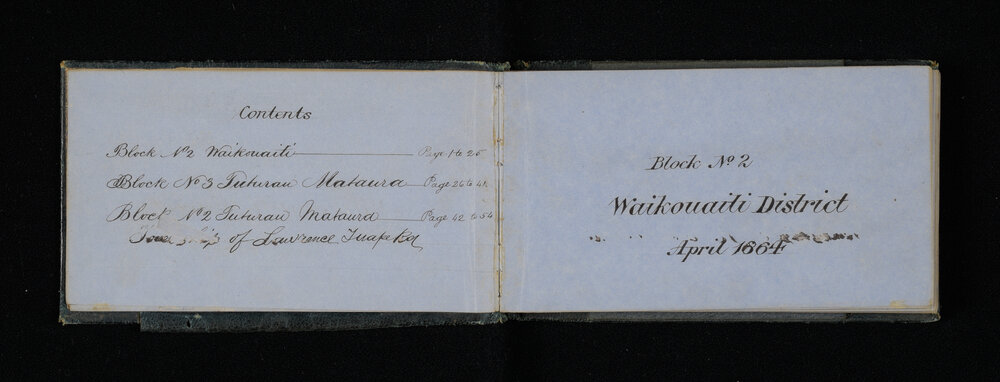 Contents
Block No 2 Waikouaiti Page 1 to 25
Block No 3 Tuturau Mataura Page 26 to 41
Block No 2 Tuturau Mataura Page 42 to 54
Township of Lawrence Tuapeka
Block No 2
Waikouaiti District
April 1864